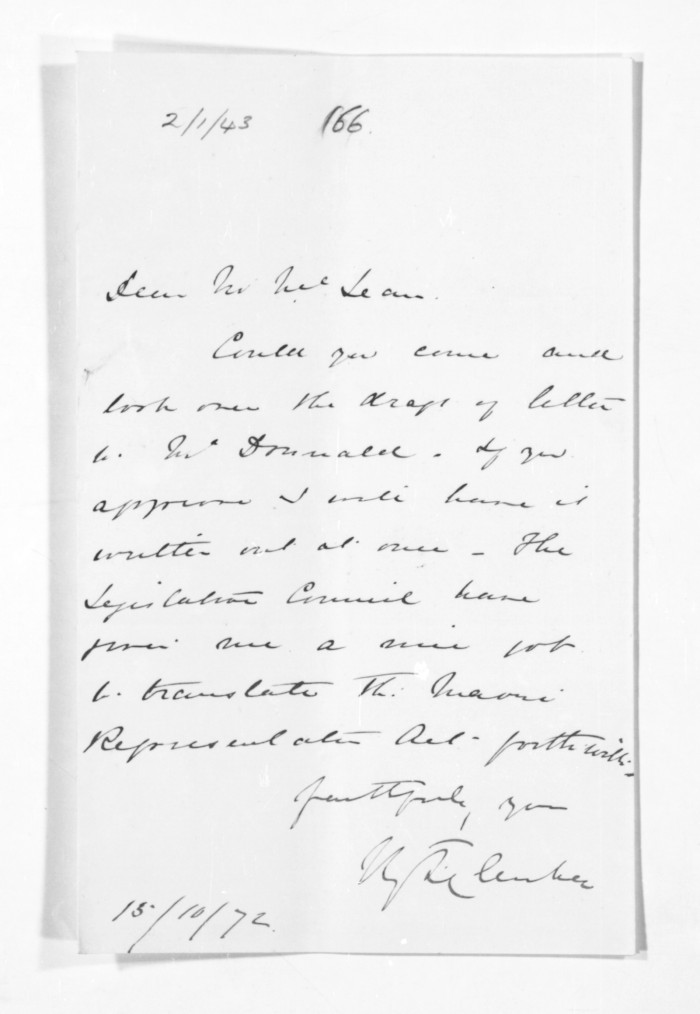 2/1/43 166.
Dear Mr McLean.
Could you come and
look over the draft of letter
to Mr Donnald. If you
approve I will have it
written out at once - The
Legislative Council have
given me a nice job
to translate the Maori
Representation Act - forthwith -
faithfully yours
H T Clarke
15/10/72.